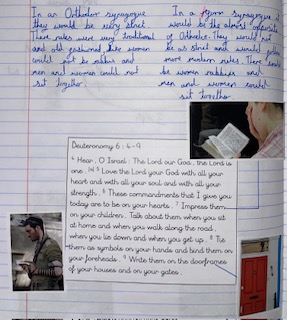 In an Orthodox synagogue
they would be very strict.
There rules were very traditional
and old fashioned like women
could not be rabbis and
men and women could not
sit together.
In a reform synagogue it
would be the almost opposite
of Orthodox. They would not
be as strict and would
more modern rules. There
be women rabbis and
men and women could
sit together
Deuteronomy 6:4-9
4 Hear, O Israel: The Lord our God, the Lord is
one. [a] 5 Love the Lord your God with all your
heart and with all your soul and with all your
strength. 6 These commandments that I give you
today are to be on your hearts. 7 Impress them
on your children. Talk about them when you sit
at home and when you walk along the road,
when you lie down and when you get up. 8 Tie
them as symbols on your hands and bind them on
your foreheads. 9 Write them on the doorframes
of your houses and on your gates.